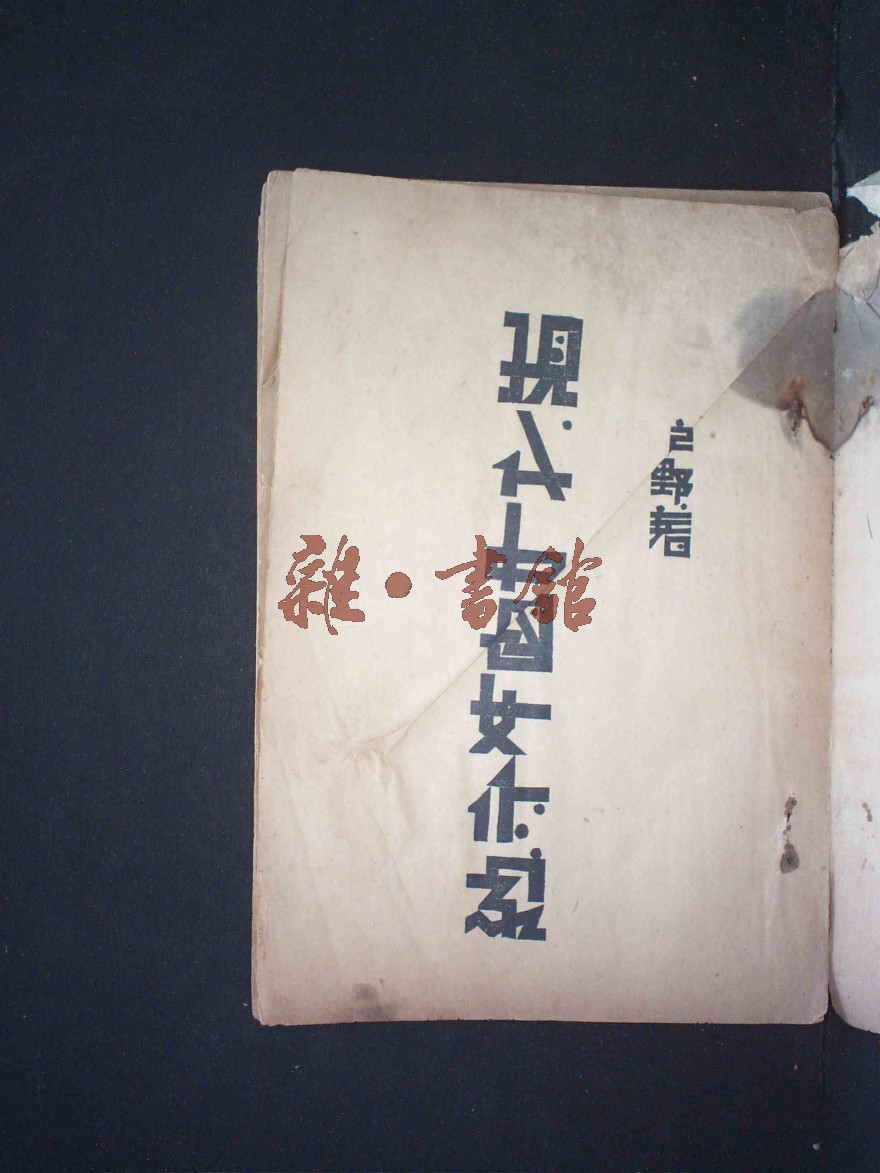 野著
現代中國女作家
雜·書館